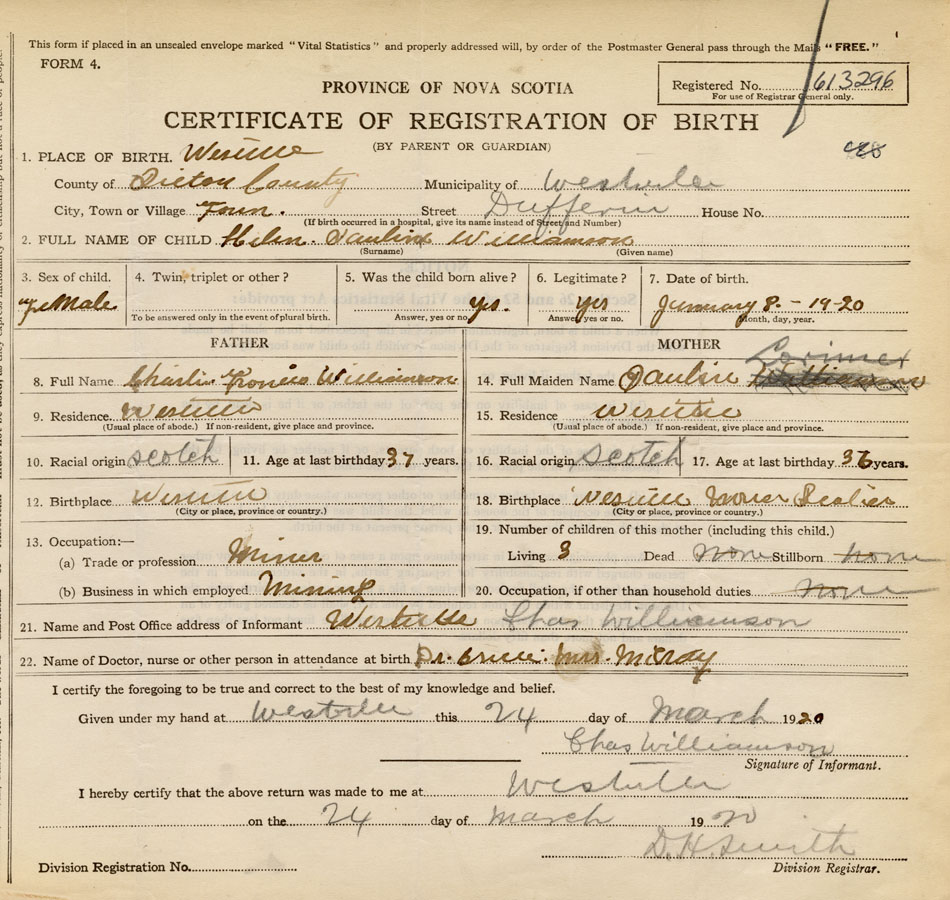 This form if placed in an unsealed envelope marked "Vital Statistics" and properly addressed will, by order of the Postmaster General pass through the Mails "FREE."
FORM 4.
PROVINCE OF NOVA SCOTIA
Registered No. 613296
For use of Registrar General only.
CERTIFICATE OF REGISTRATION OF BIRTH
(BY PARENT OR GUARDIAN)
1. PLACE OF BIRTH. Westville
County of Pictou County Municipality of Westville
City, Town or Village Town. Street Dufferin House No.
(If birth occurred in a hospital, give its name instead of Street and Number)
2. FULL NAME OF CHILD Helen. Pauline Williamson
(Surname) (Given name)
3. Sex of child. 4. Twin, triplet or other? 5. Was the child born alive? 6. Legitimate? 7. Date of birth.
FeMale yes. yes January 8. - 1920
To be answered only in the event of plural birth. Answer, yes or no. Answer, yes or no. Month, day, year.
FATHER MOTHER
Lorimer
8. Full Name Charlie Francis Williamson 14. Full Maiden Name Pauline Williamson
9. Residence. Westville 15. Residence Westville
(Usual place of abode.) If non-resident, give place and province. (Usual place of abode.) If non-resident, give place and province.
10. Racial origin Scotch 11. Age at last birthday 37 years. 16. Racial origin Scotch 17. Age at last birthday 36 years.
12. Birthplace Westville 18. Birthplace Westville Nova Scotia
(City or place, province or country.) (City or place, province or country.)
19. Number of children of this mother (including this child.)
13. Occupation:—
(a) Trade or profession Miner Living 3 Dead None Stillborn none
(b) Business in which employed Mining 20. Occupation, if other than household duties none
21. Name and Post Office address of Informant Westville Chas Williamson
22. Name of Doctor, nurse or other person in attendance at birth Dr. Mrs.
I certify the foregoing to be true and correct to the best of my knowledge and belief.
Given under my hand at Westville this 24 day of March 1920
Chas Williamson
Signature of Informant.
I hereby certify that the above return was made to me at Westville
on the 24 day of March 1920
D. H. Smith
Division Registration No. Division Registrar.